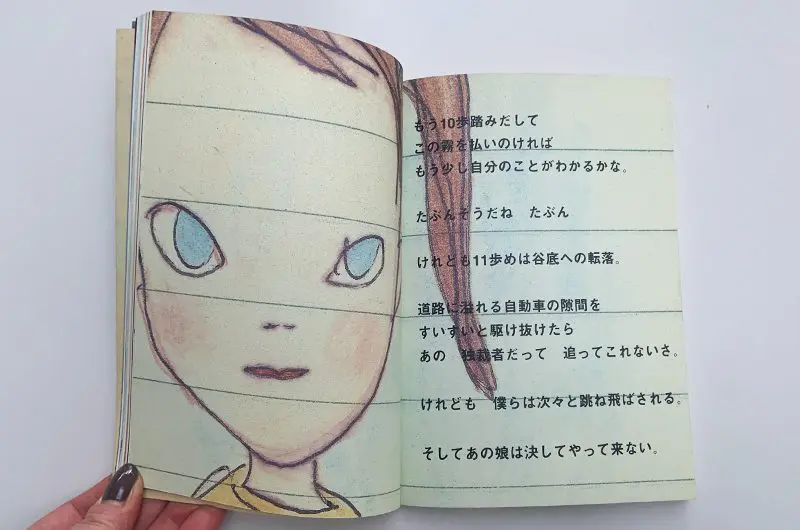 もう10歩踏みだして
この霧を払いのければ
もう少し自分のことがわかるかな。
たぶんそうだね　たぶん
けれども11歩めは谷底への転落。
道路に溢れる自動車の隙間を
すいすいと駆け抜けたら
あの　独裁者だって　追ってこれないさ。
けれども　僕らは次々と跳ね飛ばされる。
そしてあの娘は決してやって来ない。